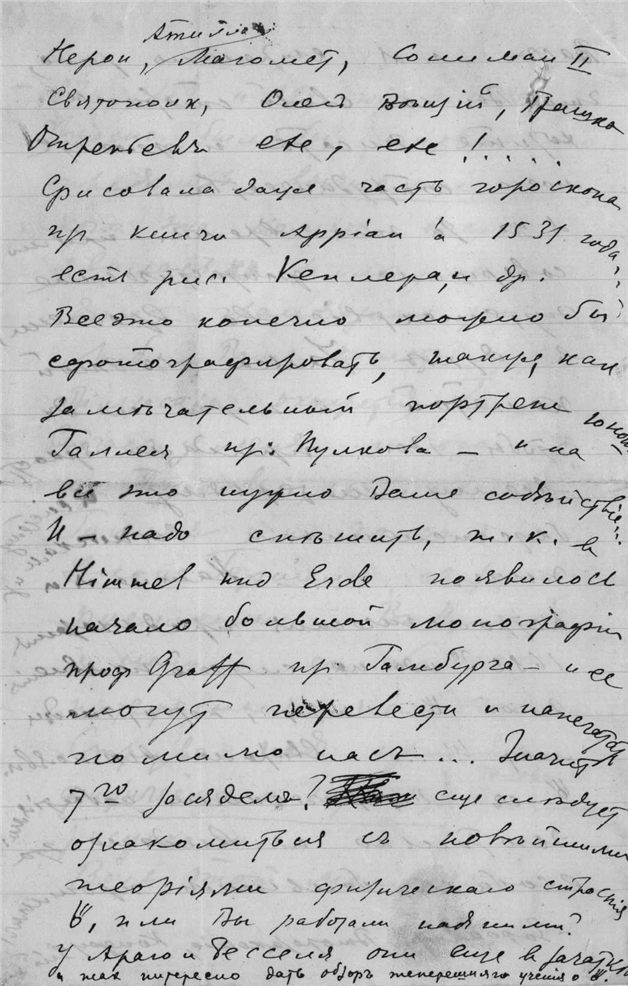 Аттила
Нерон, Магомет, Солиман II
Святополк, Олегъ Вѣщій, Гришка
Отрепьевъ еtc, еtc!.....
Срисовала даже часть гороскопа
изъ книги Appian'а 1531 года,
есть рис. Кеплера, и др.
Все это конечно можно бы
сфотографировать, также, какъ
замѣчательный портретъ юноши
Галлея изъ Пулкова – и на
всё это нужно Ваше содѣйствіе...
И – надо спѣшить, т.к. в
Himmel und Erde появилось
начало большой монографіи
проф Graff изъ Гамбурга – и ее
могутъ перевести и напечатать
помимо насъ... Значитъ
7го раздела? еще слѣдует
ознакомиться съ новѣйшими
теоріями физическаго строенія
☄, или Вы работали надъ ними?
У Араго и Бесселя они еще в зачаткѣ
и такъ интересно дать обзоръ теперешняго ученія о ☄.